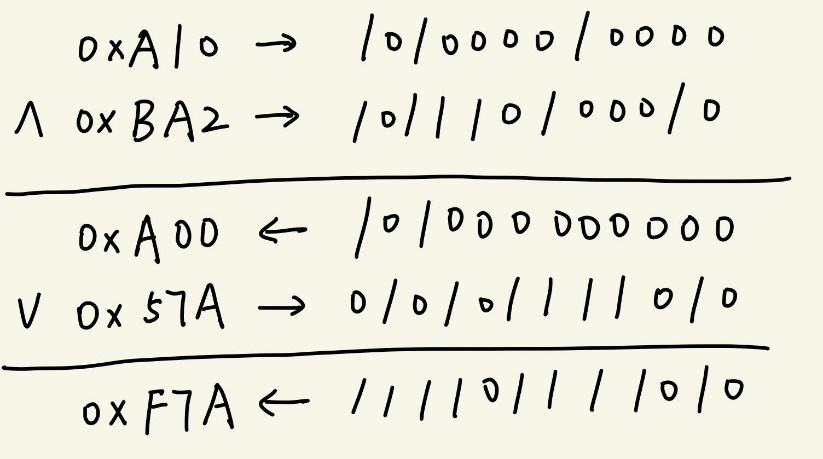 0xA10 → 101000010000
∧ 0xBA2 → 101110100010
0xA00 ← 101000000000
∨ 0x57A → 010101111010
0xF7A ← 111101111010